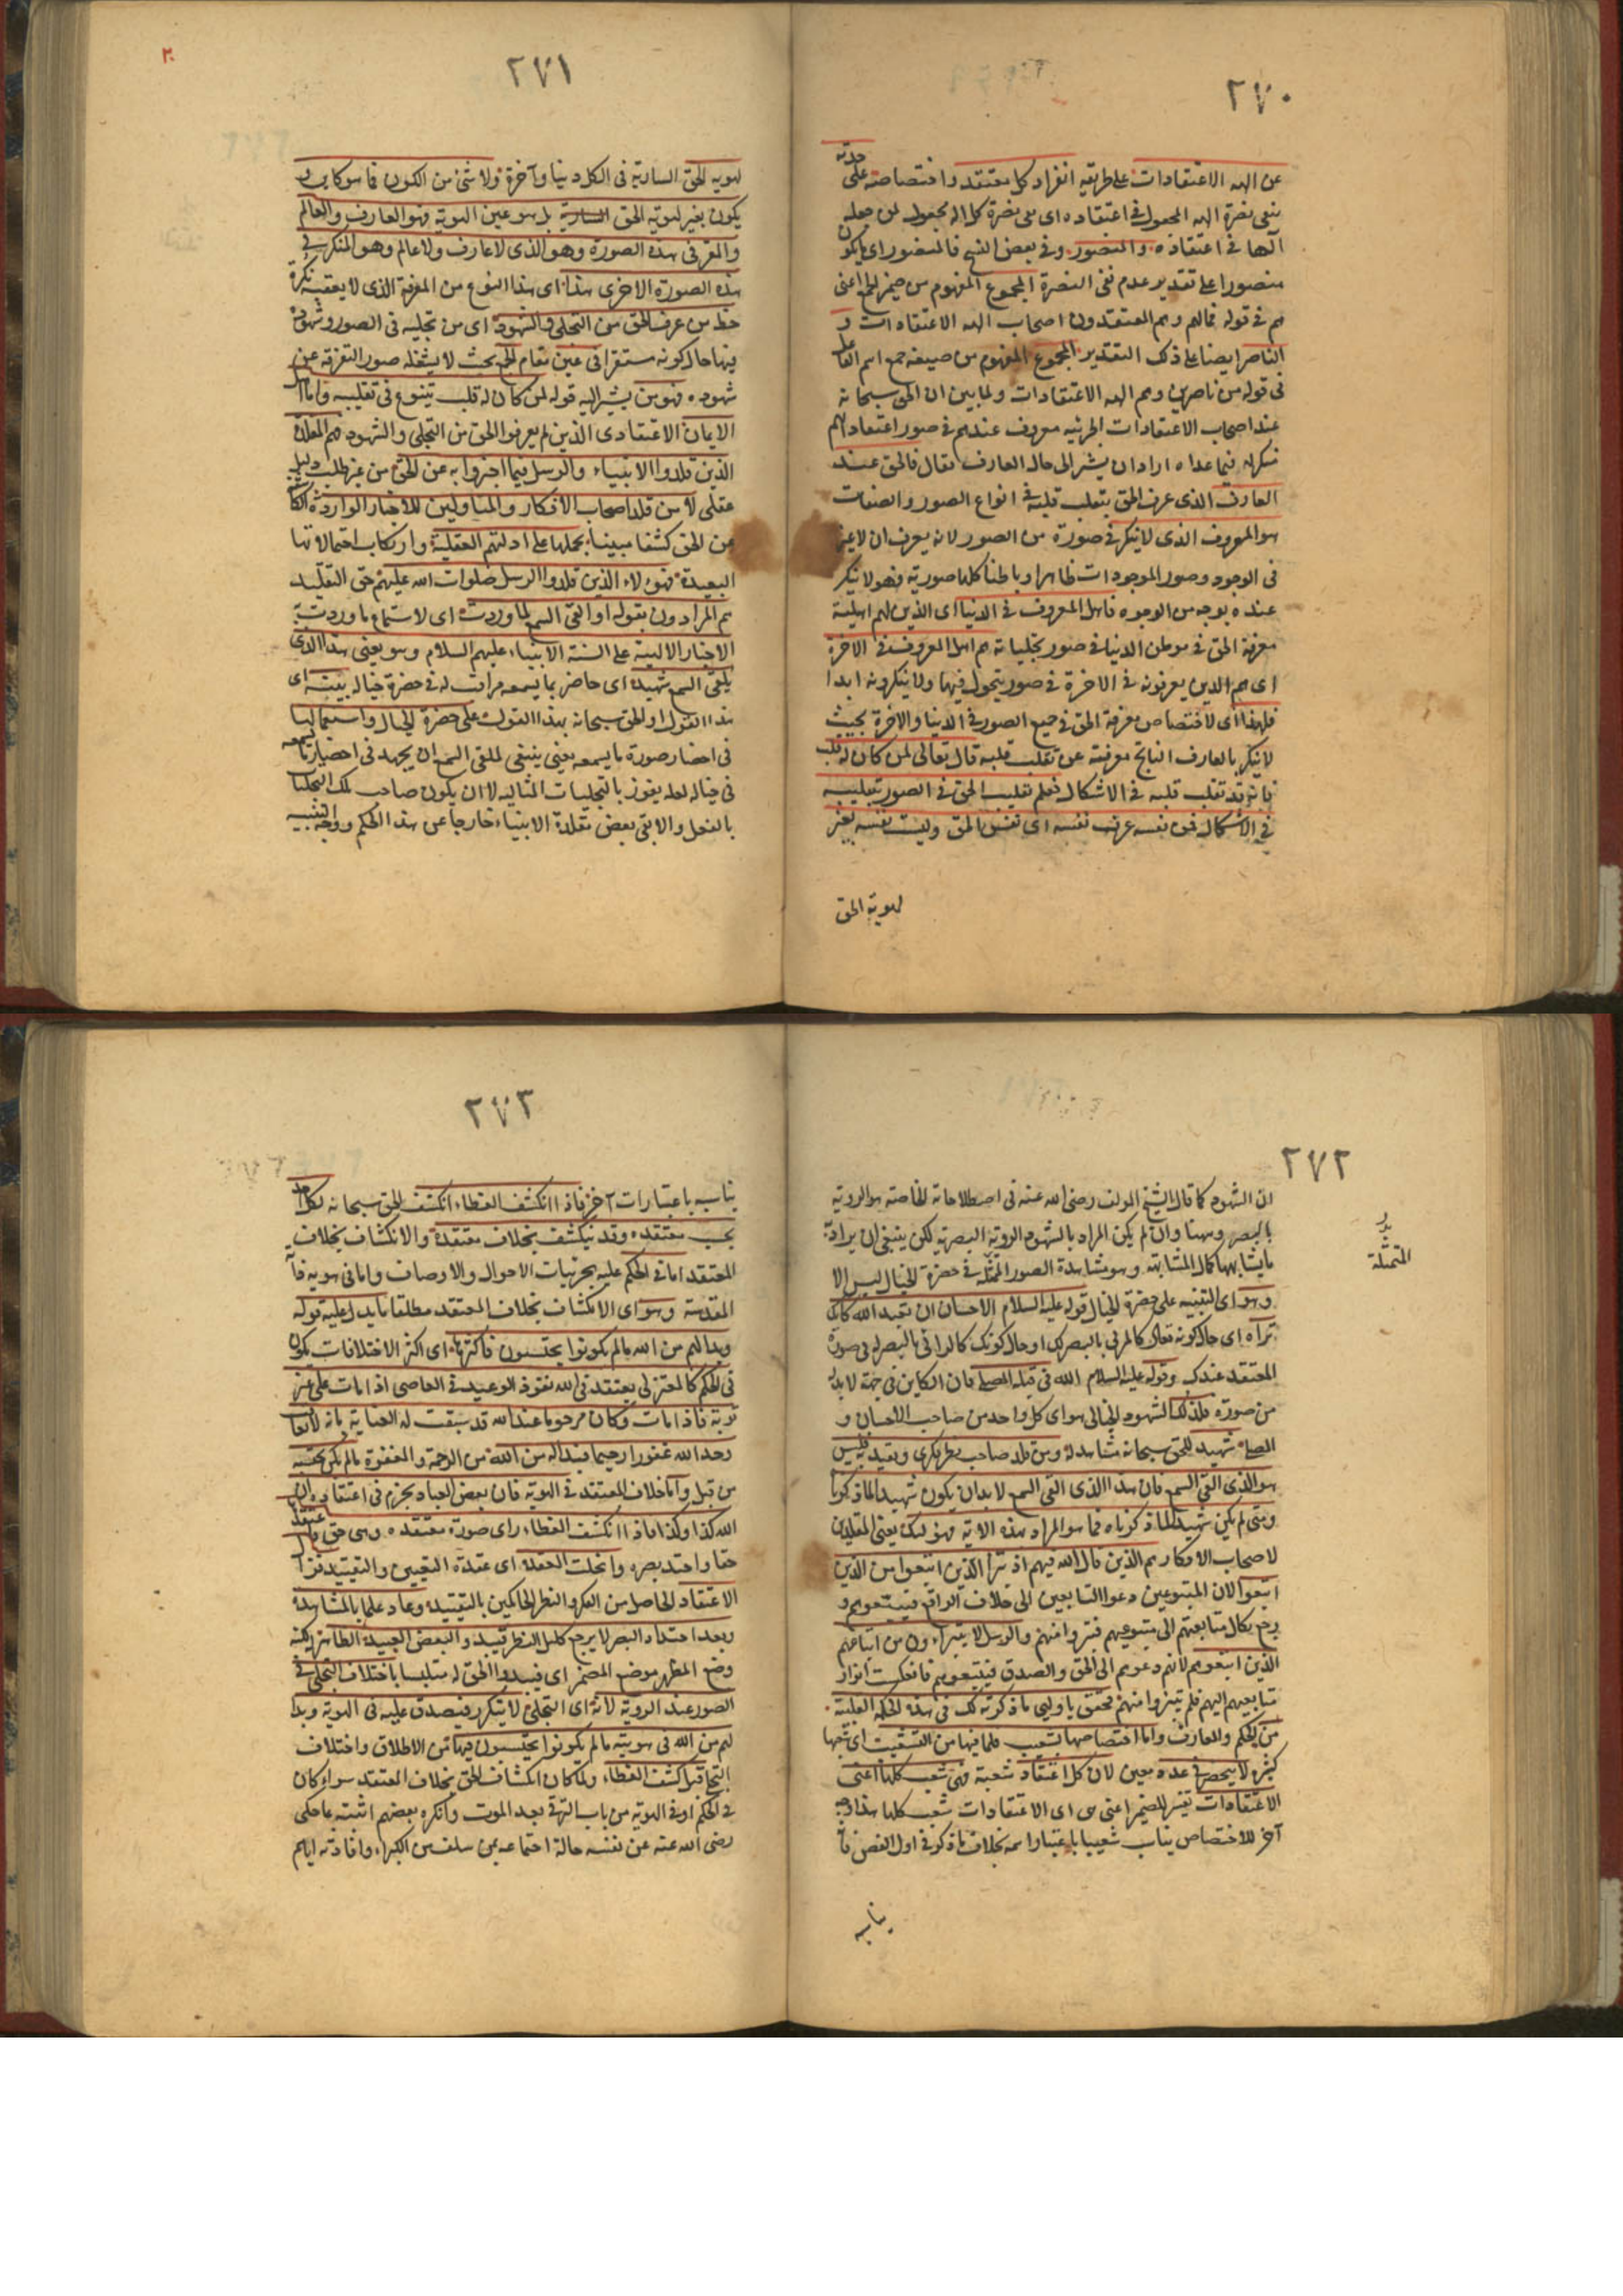 ٢٧٠
عن اله الاعتقادات على طريقة انفراد كل معتقد واختصاصه على حدته
بنفى نصرة اله المجعول فى اعتقاده اى نفى نصرة كل اله مجعول لمن جعله
الها فى اعتقاده والمنصور وفى بعض النسخ فالمنصور اى ما يكون
منصورا على تقدير عدم نفى النصرة المجموع المفهوم من ضمير الجمع اعنى
هم فى قوله فما لهم وهم المعتقدون اصحاب اله الاعتقادات و
الناصر ايضا على ذلك التقدير المجموع المفهوم من صيغة جمع اسم الفاعل
فى قوله من ناصرين وهم اله الاعتقادات ولما بين ان الحق سبحانه
عند اصحاب الاعتقادات الجزئية معروف عندهم فى صور اعتقاداتهم
منكر له فيما عداه اراد ان يشير الى حال العارف فقال فالحق عند
العارف الذى عرف الحق بتقلب قلبه فى انواع الصور والصفات
هو المعروف الذى لا ينكر فى صورة من الصور لانه يعرف ان لا غير
فى الوجود وصور الموجودات ظاهرا وباطنا كلها صورته فهو لا ينكر
عنده بوجه من الوجوه فاهل المعروف فى الدنيا اى الذين لهم اهلية
معرفة الحق فى موطن الدنيا فى صور تجلياته هم اهل المعروف فى الاخرة
اى هم الذين يعرفونه فى الاخرة فى صور يتحول فيها ولا ينكرونه ابدا
فلهذا اى لاختصاص معرفة الحق فى جميع الصور فى الدنيا والاخرة بحيث
لا ينكر بالعارف الناتج معرفته عن تقلب قلبه قال تعالى لمن كان له قلب
فانه قد تقلب قلبه فى الاشكال فعلم تقليب الحق فى الصور بتقليبه
فى الاشكال فمن نفسه عرف نفسه اى نفس الحق وليست نفسه بغير
لهوية الحق
٢٧١
لهوية الحق السارية فى الكل دنيا وآخرة ولا شئ من الكون مما هو كاين و
يكون بغير لهوية الحق السارية بل هو عين الهوية فهو العارف والعالم
والمقر فى هذه الصورة وهو الذى لا عارف ولا عالم وهو المنكر فى
هذه الصورة الاخرى هذا اى هذا النوع من المعرفة الذى لا يعقبه نكرة
حظ من عرف الحق من التجلى والشهود اى من تجليه فى الصور وشهوده
فيها حال كونه مستقرا فى عين مقام الجمع بحيث لا يشغله صور التفرقة عن
شهوده فهو من يشير اليه قوله لمن كان له قلب يتنوع فى تقليبه واما اهل
الايمان الاعتقادى الذين لم يعرفوا الحق من التجلى والشهود فهم المقلدة
الذين قلدوا الانبياء والرسل فيما اخبروا به عن الحق من غير طلب دليل
عقلى لا من قلد اصحاب الافكار والمتأولين للاخبار الواردة الكاشفة
عن الحق كشفا مبينا بحملها على ادلتهم العقلية وارتكاب احتمالاتها
البعيدة فهؤلاء الذين قلدوا الرسل صلوات الله عليهم حق التقليد
هم المرادون بقوله او القى السمع لما وردت اى لاستماع ما وردت به
الاخبار الالهية على السنة الانبياء عليهم السلام وهو يعنى هذا الذى
يلقى السمع شهيد اى حاضر بما يسمعه مراقب له فى حضرة خياله ينبه اى
هذا القول او الحق سبحانه بهذا القول على حضرة الخيال واستعمالها
فى احضار صورة ما يسمعه يعنى ينبغى لملقى السمع ان يجهد فى احضار ما يسمعه
فى خياله لعله يفوز بالتجليات المثالية لا ان يكون صاحب تلك التجليات
بالفعل والا بقى بعض مقلدة الانبياء خارجا عن هذا الحكم ووجه التنبيه
٢٧٢
ان الشهود كما قال الشيخ المؤلف رضى الله عنه فى اصطلاحاته الخاصة هو الرؤية
بالبصر وههنا وان لم يكن المراد بالشهود الرؤية البصرية لكن ينبغى ان يراد به
ما يشابهها كمال المشابهة وهو مشاهدة الصور الممثلة فى حضرة الخيال ليس الا
المتمثلة
وهو اى التنبيه على حضرة الخيال قوله عليه السلام الاحسان ان تعبد الله كانك
تراه اى حال كونه تعالى كالمرئى بالبصر لك او حال كونك كالرائى بالبصر له فى صورة
المعتقد عندك وقوله عليه السلام الله فى قبلة المصلى فان الكاين فى جهة لا بد له
من صورة فلذلك الشهود الخيالى هو اى كل واحد من صاحب الاحسان و
المصلى شهيد للحق سبحانه مشاهد له ومن قلد صاحب نظر فكرى وتقيد به فليس
هو الذى القى السمع فان هذا الذى القى السمع لا بد ان يكون شهيدا لما ذكرنا
ومتى لم يكن شهيدا لما ذكرناه فما هو المراد بهذه الاية فهؤلاء يعنى المقلدين
لاصحاب الافكار هم الذين قال الله فيهم اذ تبرأ الذين اتبعوا من الذين
اتبعوا لان المتبوعين دعوا التابعين الى خلاف الواقع فيتبعونهم و
يرجع نكال متابعتهم الى متبوعيهم فتبروا منهم والرسل لا يتبرءون من اتباعهم
الذين اتبعوهم لانهم دعوهم الى الحق والصدق فيتبعونهم فانعكست انوار
متابعيهم اليهم فلم يتبروا منهم فحقق يا وليى ما ذكرته لك فى هذه الحكمة القلبية
من الحكم والمعارف واما اختصاصها بشعيب فلما فيها من التشعيب اى شعبها
كثيرة لا ينحصر فى عدد معين لان كل اعتقاد شعبة فهى شعب كلها اعنى
الاعتقادات تفسير للضمير اعنى هى اى الاعتقادات شعب كلها هذا وجه
آخر للاختصاص يناسب شعيبا باعتبار اسمه بخلاف ما ذكر فى اول الفص فانه
يناسبه
٢٧٣
يناسبه باعتبارات آخر فاذا انكشف الغطاء انكشف الحق سبحانه لكل احد
بحسب معتقده وقد ينكشف بخلاف معتقده والانكشاف بخلاف
المعتقد اما فى الحكم عليه بجزئيات الاحوال والاوصاف واما فى هويه ذاته
المقدسة وهو اى الانكشاف بخلاف المعتقد مطلقا ما يدل عليه قوله
وبدا لهم من الله ما لم يكونوا يحتسبون فاكثرها اى اكثر الاختلافات يكون
فى الحكم كالمعتزلى يعتقد فى الله نفوذ الوعيد فى العاصى اذا مات على غير
توبة فاذا مات وكان مرحوما عند الله قد سبقت له العناية بانه لا يعاقب
وجد الله غفورا رحيما فبدا له من الله من الرحمة والمغفرة ما لم يكن يحتسبه
من قبل واما خلاف المعتقد فى الهوية فان بعض العباد يجزم فى اعتقاده ان
الله كذا وكذا فاذا انكشف الغطاء راى صورة معتقده وهى حق فاعتقدها
حقا واحتد بصره وانحلت العقدة اى عقدة التعيين والتقييد فزال
الاعتقاد الحاصل من الفكر والنظر الحاكمين بالتقييد وعاد علما بالمشاهدة
وبعد احتداد البصر لا يرجع كليل النظر فيبدو لبعض العبيد الظاهر لكنه
وضع المظهر موضع المضمر اى فيبدو الحق له متلبسا باختلاف التجلى فى
الصور عند الرؤية لانه اى التجلى لا يتكرر فيصدق عليه فى الهوية وبدا
لهم من الله فى هويته ما لم يكونوا يحتسبون فيها من الاطلاق واختلاف
التجلى قبل كشف الغطاء ولما كان انكشاف الحق بخلاف المعتقد سواء كان
فى الحكم او فى الهوية من باب الترقى بعد الموت وانكره بعضهم اثبته بما حكى
رضى الله عنه عن نفسه حالة اجتماعه بمن سلف من الكبراء وافادته اياهم